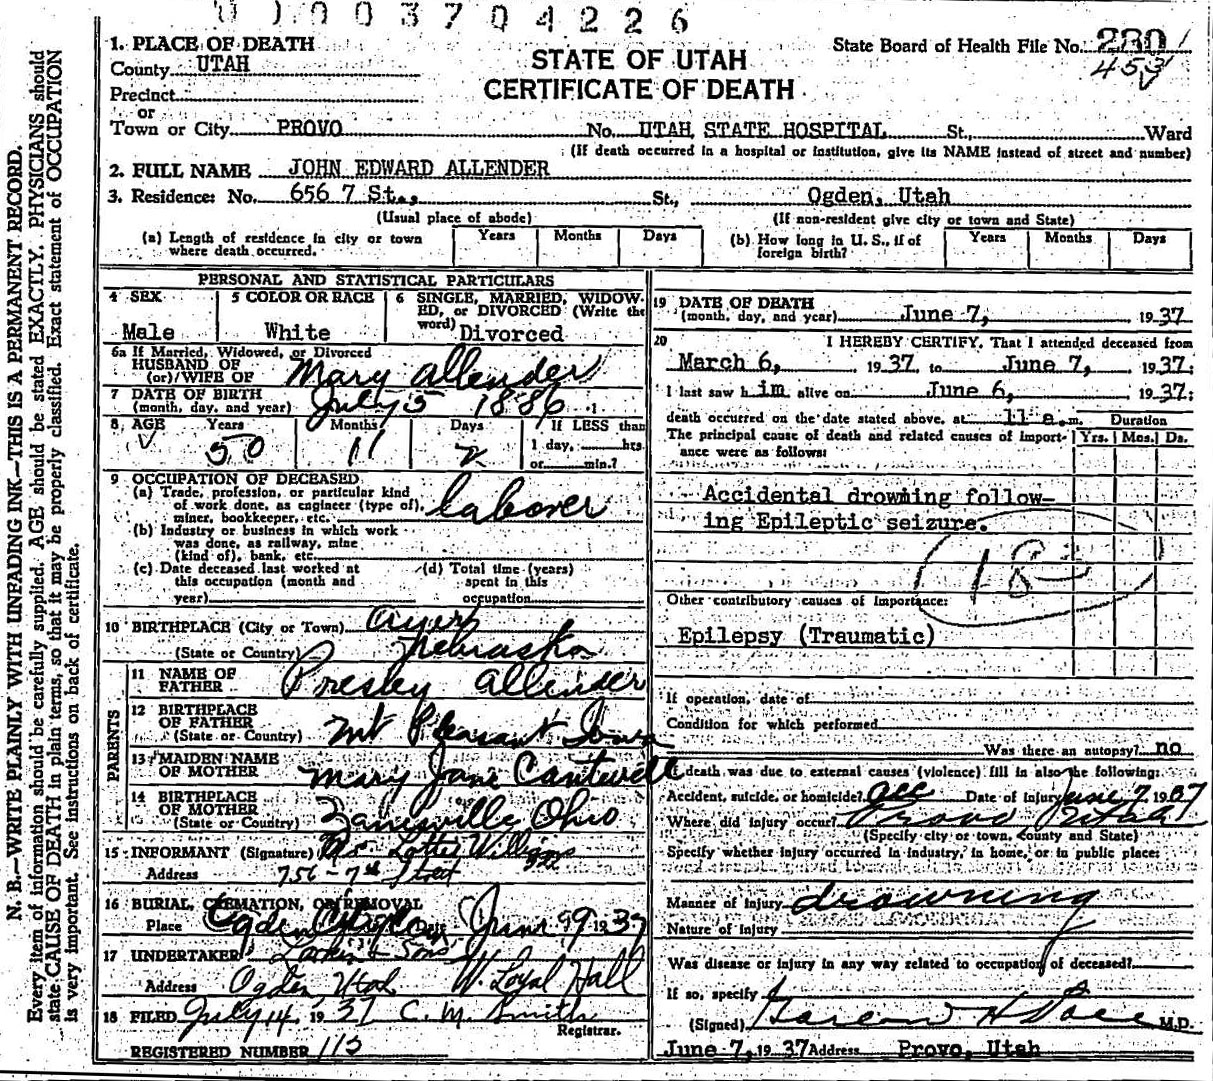 0 1 0 0 3 7 0 4 2 2 6
N. B.—WRITE PLAINLY WITH UNFADING INK—THIS IS A PERMANENT RECORD.
Every item of information should be carefully supplied. AGE should be stated EXACTLY. PHYSICIANS should
state CAUSE OF DEATH in plain terms, so that it may be properly classified. Exact statement of OCCUPATION
is very important. See instructions on back of certificate.
STATE OF UTAH
CERTIFICATE OF DEATH
State Board of Health File No. 280
453
1. PLACE OF DEATH
County UTAH
Precinct
or
Town or City PROVO No. UTAH STATE HOSPITAL St., Ward
(If death occurred in a hospital or institution, give its NAME instead of street and number)
2. FULL NAME JOHN EDWARD ALLENDER
3. Residence: No. 656 7 St., St., Ogden, Utah
(Usual place of abode) (If non-resident give city or town and State)
(a) Length of residence in city or town where death occurred. Years Months Days
(b) How long in U. S., if of foreign birth? Years Months Days
PERSONAL AND STATISTICAL PARTICULARS
4 SEX Male
5 COLOR OR RACE White
6 SINGLE, MARRIED, WIDOWED, or DIVORCED (Write the word) Divorced
6a If Married, Widowed, or Divorced
HUSBAND OF
(or) WIFE OF Mary Allender
7 DATE OF BIRTH
(month, day, and year) July 5 1886
8 AGE Years 50 Months 11 Days 2 If LESS than
1 day, hrs.
or min.?
9 OCCUPATION OF DECEASED
(a) Trade, profession, or particular kind
of work done, as engineer (type of),
miner, bookkeeper, etc. laborer
(b) Industry or business in which work
was done, as railway, mine
(kind of), bank, etc.
(c) Date deceased last worked at
this occupation (month and
year)
(d) Total time (years)
spent in this
occupation
10 BIRTHPLACE (City or Town)
(State or Country) Nebraska
PARENTS
11 NAME OF
FATHER Presley Allender
12 BIRTHPLACE
OF FATHER
(State or Country) Mt Pleasant Iowa
13 MAIDEN NAME
OF MOTHER Mary Jane Cantwell
14 BIRTHPLACE
OF MOTHER
(State or Country) Zanesville Ohio
15 INFORMANT (Signature) Williams
Address 756 - 7th Street
16 BURIAL, CREMATION, OR REMOVAL
Place Ogden City Date June 9 1937
17 UNDERTAKER Larkin & Sons
Address Ogden Utah W. Loyal Hall
18 FILED July 14, 1937 C. M. Smith
Registrar.
REGISTERED NUMBER 115
19 DATE OF DEATH
(month, day, and year) June 7, 1937
20 I HEREBY CERTIFY, That I attended deceased from
March 6, 1937 to June 7, 1937;
I last saw him alive on June 6, 1937;
death occurred on the date stated above, at 11 a.m. Duration
The principal cause of death and related causes of importance were as follows: Yrs. Mos. Ds.
Accidental drowning follow-
ing Epileptic seizure.
183
Other contributory causes of importance:
Epilepsy (Traumatic)
If operation, date of
Condition for which performed
Was there an autopsy? no
death was due to external causes (violence) fill in also the following:
Accident, suicide, or homicide? acc Date of injury June 7 1937
Where did injury occur? Provo Utah
(Specify city or town, county and State)
Specify whether injury occurred in industry, in home, or in public place:
Manner of injury drowning
Nature of Injury
Was disease or injury in any way related to occupation of deceased?
If so, specify
(Signed) M.D.
June 7, 1937 Address Provo, Utah